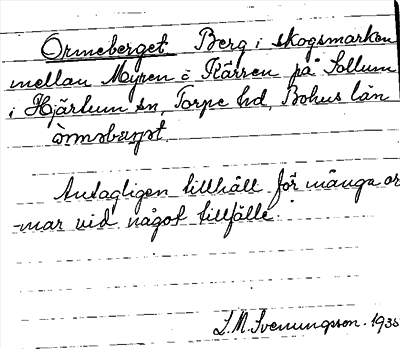 Ormeberget Berg i skogsmarken
mellan Myren o Kärren på Sollum
i Hjärtum sn, Torpe hd, Bohus län
Antagligen tillhåll för många or
-mar vid något tillfälle.
L.M. Svenungsson. 1935